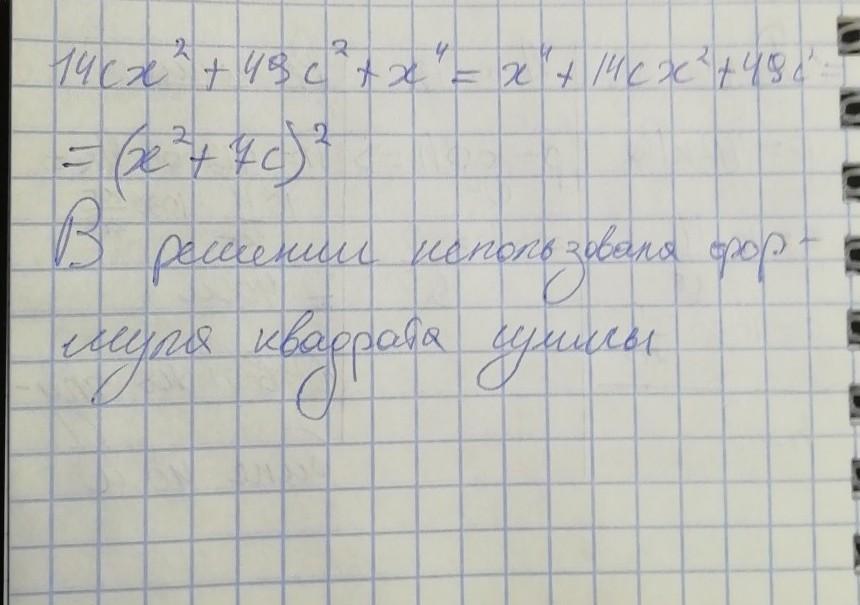 14cx² + 49c² + x⁴ = x⁴ + 14cx² + 49c² =
= (x² + 7c)²
В решении использована фор-
мула квадрата суммы